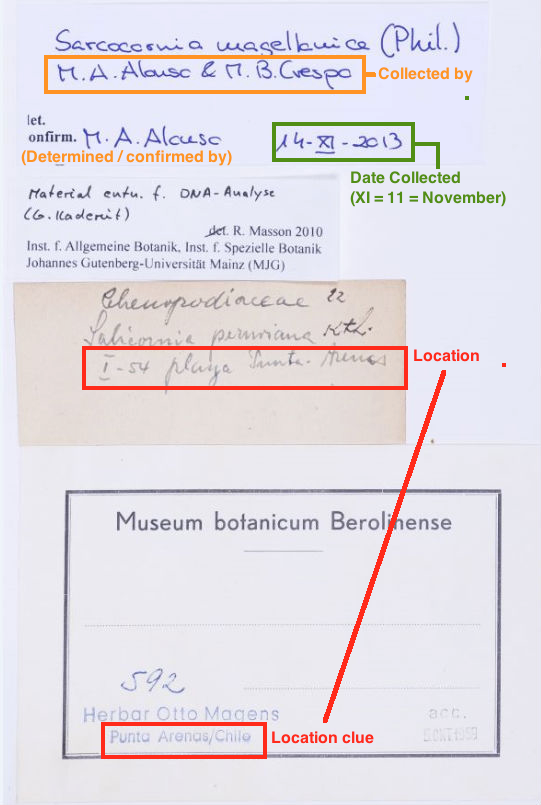 Sarcocornia magellanica (Phil.)
M. A. Alonso & M. B. Crespo
Collected by
det.
confirm. M. A. Alonso
14-XI-2013
(Determined / confirmed by)
Date Collected
(XI = 11 = November)
Material entn. f. DNA-Analyse
(G. Kadereit)
det. R. Masson 2010
Inst. f. Allgemeine Botanik, Inst. f. Spezielle Botanik
Johannes Gutenberg-Universität Mainz (MJG)
Chenopodiaceae 22
Salicornia peruviana Kth.
I-54 playa Punta-Arenas
Location
Museum botanicum Berolinense
592
Herbar Otto Magens
acc.
Punta Arenas/Chile
Location clue
5.OKT.1959